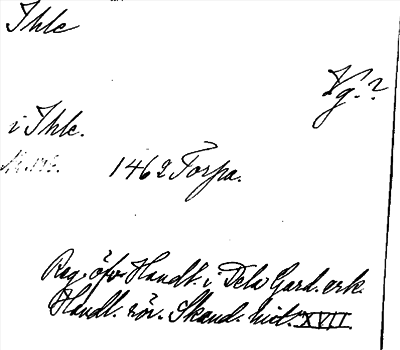 Ihle
Vg.?
i Ihle.
1462 Torpa.
Reg. öfv. Handl. i Dela Gard. ark.
Handl. rör. Skand. hist. XVII